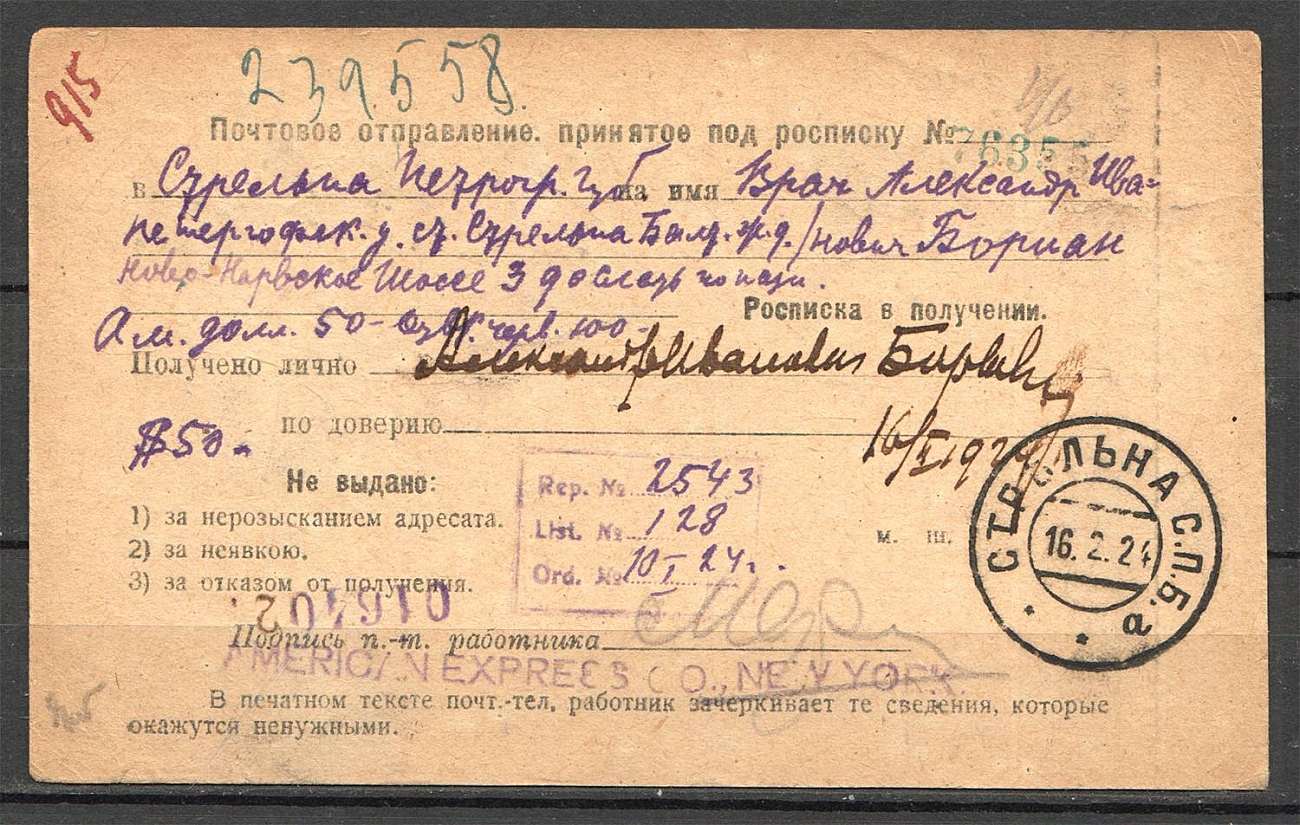 915
239558.
Почтовое отправление. принятое под росписку № 76355
в Стрельна Петрогр. губ на имя Врач Александр Ива-
Петергофск. у. ст. Стрельна Балт. ж. д. / нович
Ново-Нарвское Шоссе 3
Росписка в получении.
Ам. долл. 50- черв. 100-
Получено лично Александр Иванович
$50-
по доверию
16/II 1924
Не выдано:
1) за нерозысканием адресата.
2) за неявкою.
3) за отказом от получения.
Rep. № 2543
List. № 128
Ord. № 10/I 24г.
м. ш.
СТРЕЛЬНА С.П.Б.
16.2.24
а
016402
Подпись п.-т. работника
AMERICAN EXPRESS CO., NEW YORK.
В печатном тексте почт.-тел. работник зачеркивает те сведения, которые
окажутся ненужными.